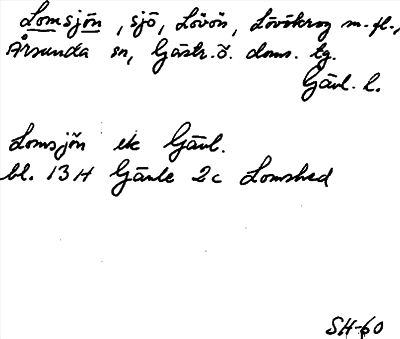 Lomsjön, sjö, Lövön, Lövökrog m.fl.,
Årsunda sn, Gästr.ö. doms. tg.
Gävl. l.
Lomsjön ek Gävl.
bl. 13H Gävle 2c Lomshed
SH-60